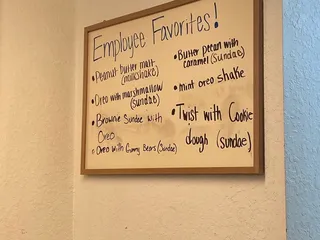 Employee Favorites!
• Peanut butter malt
(milkshake)
• Oreo with marshmallow
(sundae)
• Brownie Sundae with
Oreo
• Oreo with Gummy Bears (Sundae)
• Butter pecan with
caramel (Sundae)
• mint oreo shake
• Twist with Cookie
dough (sundae)